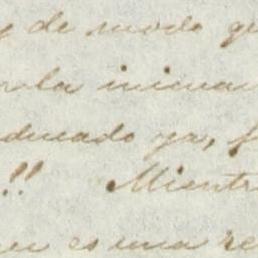 y de modo qu
rla inicua
ducado ya, f
!! Mientr
en es una re